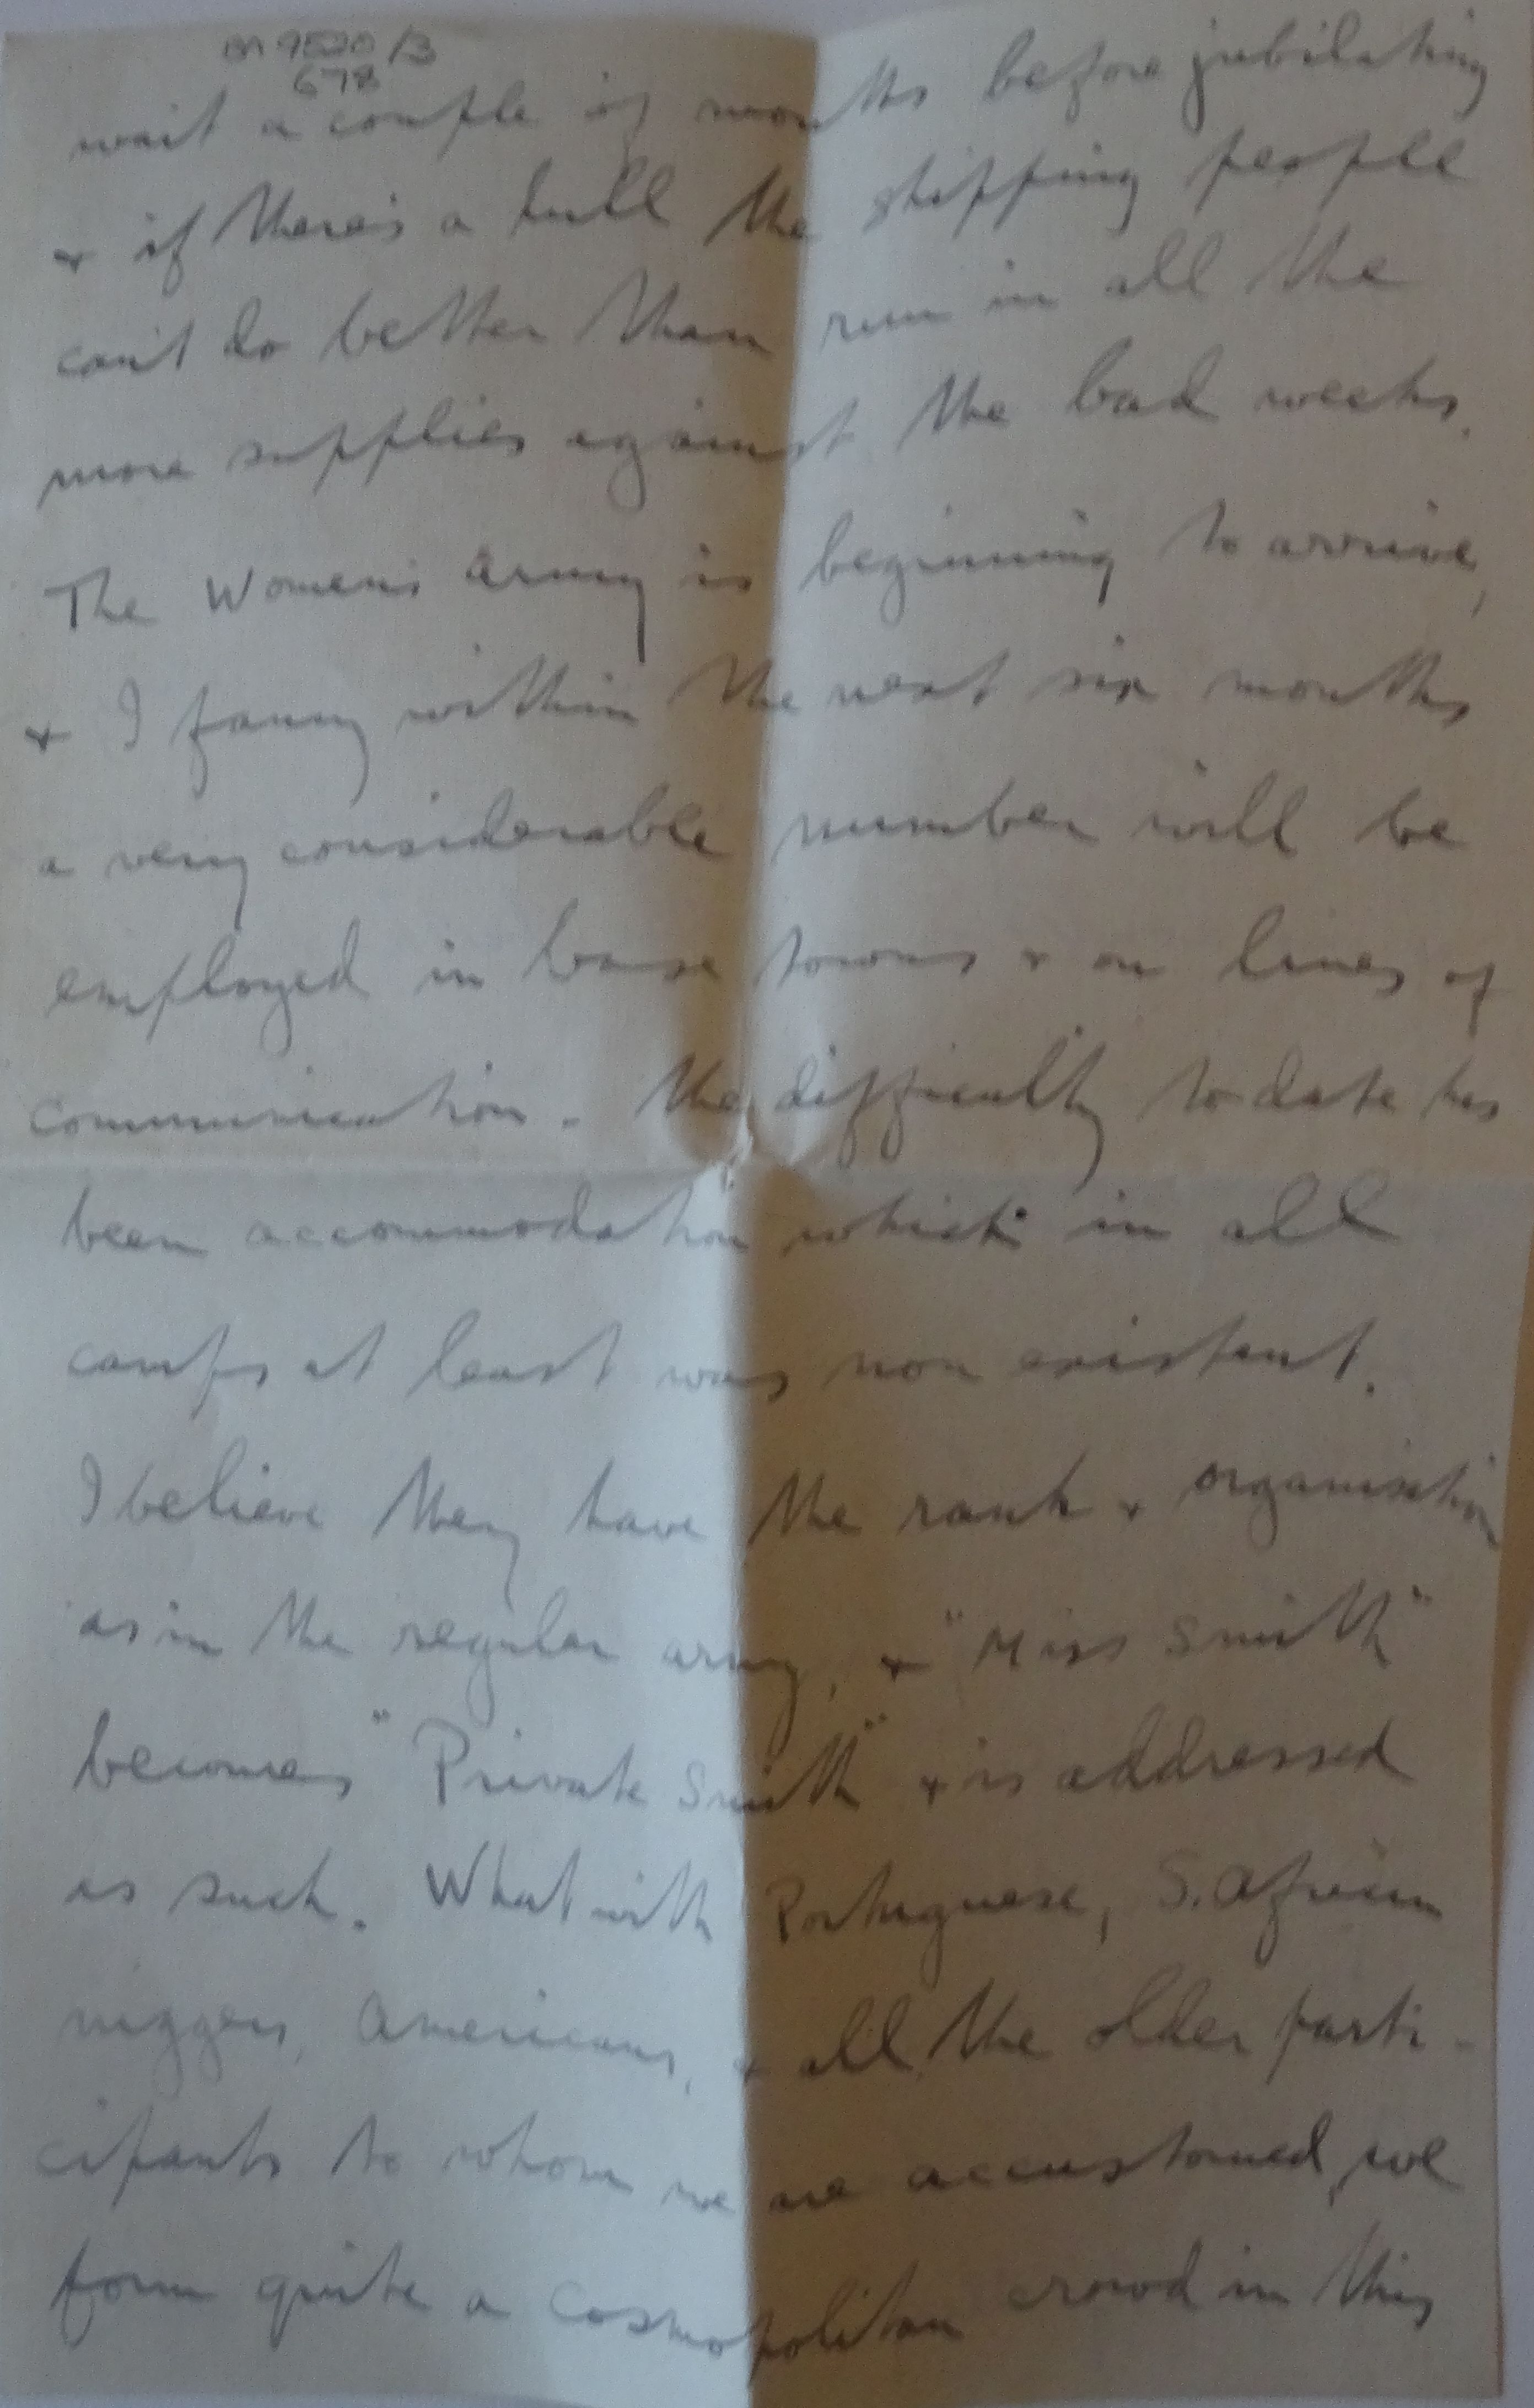 M9520/3
678
wait a couple of months before jubilating
+ if there's a lull the shipping people
can't do better than run in all the
more supplies against the bad weeks.
The Women's Army is beginning to arrive,
+ I fancy within the next six months
a very considerable number will be
employed in base towns + on lines of
communication. The difficulty to date has
been accommodation which in all
camps at least was non existent.
I believe they have the rank + organisation
as in the regular army, + "Miss Smith"
becomes "Private Smith" + is addressed
as such. What with Portuguese, S. African
niggers, Americans, + all the older parti-
cipants to whom we are accustomed, we
form quite a cosmopolitan crowd in this